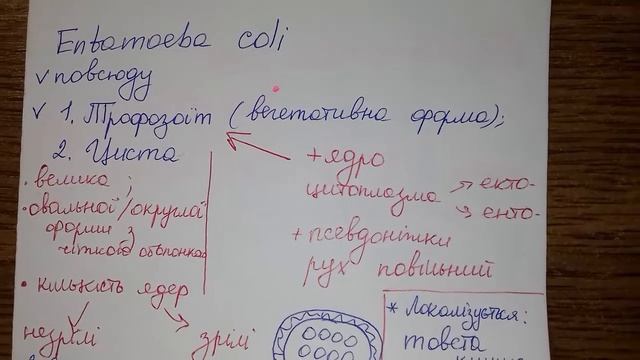 Entamoeba coli
✓ повсюду
✓ 1. Трофозоїт (вегетативна форма);
2. Циста
+ ядро
цитоплазма → екто-
→ енто-
+ псевдоніжки
рух повільний
• велика;
• овальної/округлої
форми з
чіткою оболонкою
• кількість ядер
незрілі зрілі
* Локалізується:
товста